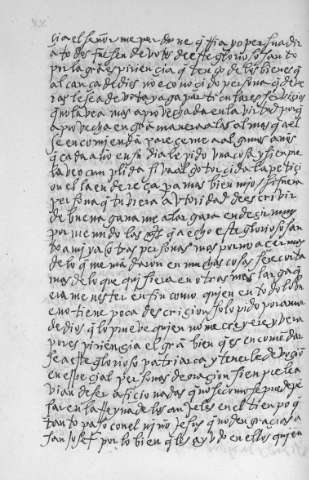 cia el señor me perdone q̄rria yo persuadir
a todos fuesen devotos deste glorioso santo
por la grā espiriençia q̄ tengo de los bienes q̄
alcança de dios no e conoçido persona q̄ de ve
ras le sea devota y aga particulares serviçios
que no la vea mas aprovechada en la virtud porq̄
aprovecha en grā manera a las almas q̄ a el
se encomiendā pareçeme a algunos años
q̄ cada año en su dia le pido una cosa y sienpre
la veo cunplida si va algo torçida la petiçi
on el la endereça para mas bien mio si fuera
persona q̄ tuviera autoridad de escrivir
de buena gana me alargara en deçir muy
por menudo las mds q̄ a echo este glorioso san
to a mi y a otras personas mas por no açer mas
de lo q̄ me mādaron en muchas cosas sere corta
mas de lo que quisiera en otras mas larga q̄
era menester en fin como quien en todo lo bu
eno tiene poca descriçion solo pido por amor
de dios q̄ lo prueve quien no me creyere y vera
por espiriençia el grā bien q̄ es encomendar
se a este glorioso patriarca y tenerle devoçiō
en espeçial personas de oraçion sienpre le a
vian de ser afiçionadas q̄ no se como se puede pē
sar en la rreyna de los anjeles en el tienpo q̄
tanto paso con el niño jesus q̄ no den graçias a
san josef por lo bien q̄ les ayudo en ellos quien